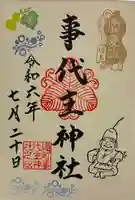 事代主神社
令和六年
七月二十日